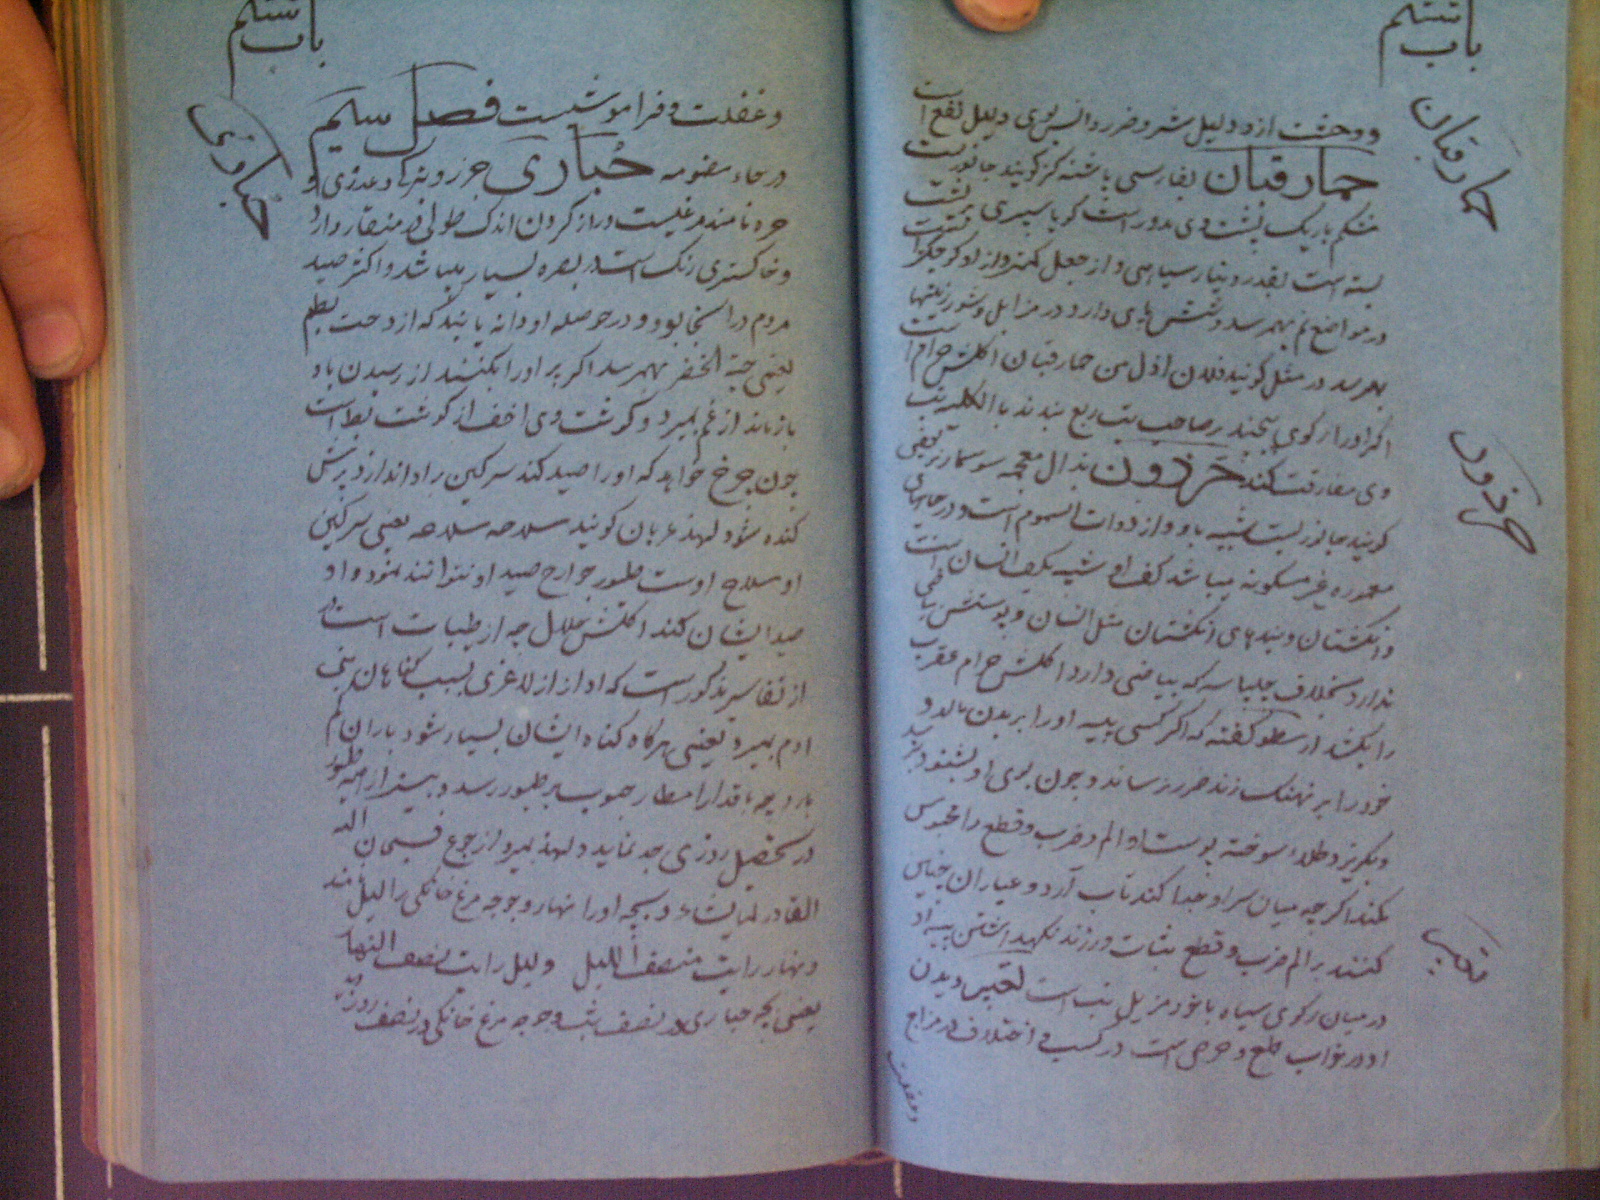 باب ششم
و وحشت از دو دلیل شر و ضرر دانس بوی دلیل نفع است
حمار قبان بفارسی پاشنه کز گویند جانوریست
شکم باریک پشت وی مدور است کویا سپری بر پشت
بسته است بقدر دینار سیاهی و از جعل کمتر و از او کوچکتر است
در مواضع نم بهم رسد و شش پای دارد در مزابل و شوره زمینها
بهم رسد در مثل گویند فلان اذل من حمار قبان اکلش حرام است
اگر او را در کوی پیچند بر صاحب تب ربع بندند بالکلیه تب
وی مفارقت کند حرذون بذال معجمه سوسمار نر بعضی
گویند جانوریست شبیه باو و از ذوات السموم است و در جاهای
معموره غیر مسکونه میباشد کف او شبیه بکف انسان است
و انگشتان و بندهای انگشتان مثل انسان و پوستش
ندارد بخلاف چلپاسه که بیاضی دارد اکلش حرام عقرب
را بکشد ارسطو گفته که اگر کسی پیه او را بر بدن مالد و
خود را بر نهنگ زند ضرر نرساند و چون بوی او بشنود
بگریزد و طلاء سوخته پوست او الم و ضرب و قطع را محسوس
نکند اگرچه میان سر او جدا کند تاب آرد و عیاران چنین
کنند بر الم ضرب و قطع ثبات ورزند نگهداشتن پیه او
در میان رکوی سیاه با خود مزیل تب است تعبیر دیدن
او در خواب طمع و حرص است در کسب و اختلاف در مزاج
و غفلت
حمار قبان
حرذون
تعبیر
باب ششم
و غفلت و فراموشیست فصل سیم
در حاء مضمومه حباری جرز و هرکا و عدزی و
حره نامند مرغیست دراز گردن اندک طولی در منقار دارد
و خاکستری رنگ است در بصره بسیار میباشد و اکثر صید
مردم در آنجا بود و در حوصله او دانه یابند که از درخت بطم
یعنی حبة الخضر بهم رسد اگر پر او را بکنند از رسیدن باو
باز ماند از غم بمیرد و گوشت وی اخف از گوشت بط است
چون چرخ خواهد که او را صید کند سرگین براو اندازد پرش
کنده شود لهذا عربان گویند سلاحه سلاحه یعنی سرگین
او سلاح اوست طیور جوارح صید او نتوانند نمود و او
صید ایشان کند اکلش حلال چه از طیبات است و
از تفاسیر مذکور است که او از لاغری بسبب گناهان بنی
آدم بمیرد یعنی هرگاه گناه ایشان بسیار شود باران کم
بارد چه باقدار امطار حبوب بر طیور رسد و بیشتر از همه طیور
در تحصیل روزی جد نماید و لهذا بمیرد از جوع فسبحان الله
القادر لما یشاء و بچه او را نهار و جوجه مرغ خانگی را لیل نامند
و نهار رایت منتصف اللیل و لیل رایت نصف النهار
یعنی بچه حباری در نصف شب و جوجه مرغ خانگی در نصف روز دیدم
حباری